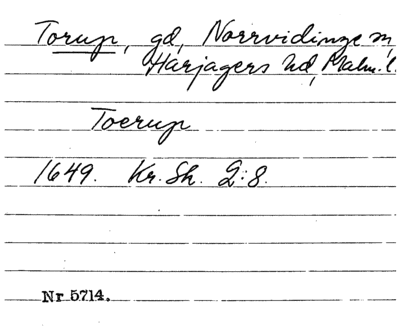 Torup, gd, Norrvidinge sn,
Harjagers hd, Malm. l.
Toerup
1649. Kr. Sk. 2:8.
Nr 5714.